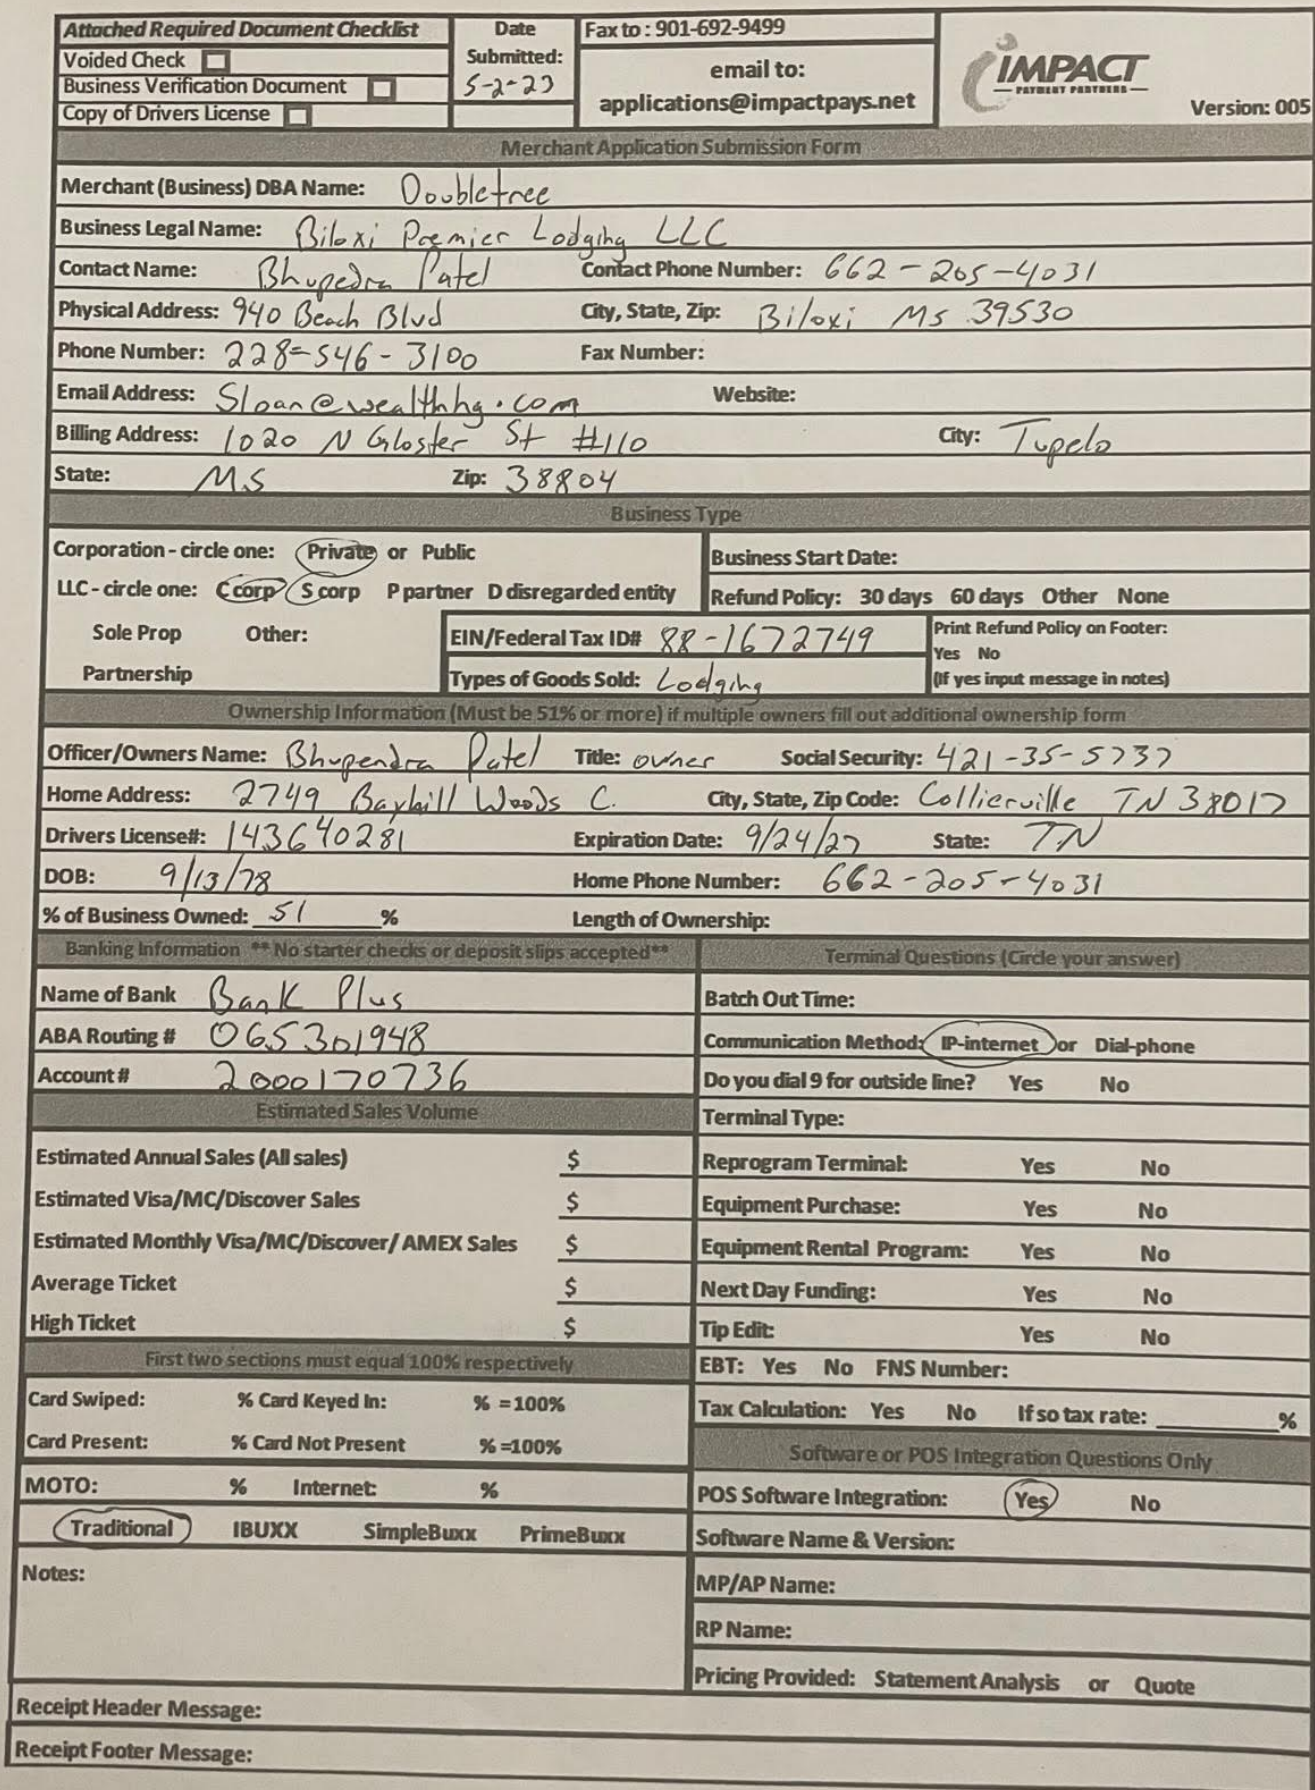 Attached Required Document Checklist
Voided Check
Business Verification Document
Copy of Drivers License
Date
Submitted:
5-2-23
Fax to : 901-692-9499
email to:
applications@impactpays.net
IMPACT
PAYMENT PARTNERS
Version: 005
Merchant Application Submission Form
Merchant (Business) DBA Name: Doubletree
Business Legal Name: Biloxi Premier Lodging LLC
Contact Name: Bhupedra Patel Contact Phone Number: 662-205-4031
Physical Address: 940 Beach Blvd City, State, Zip: Biloxi MS 39530
Phone Number: 228-546-3100 Fax Number:
Email Address: Sloan@wealthhg.com Website:
Billing Address: 1020 N Gloster St #110 City: Tupelo
State: MS Zip: 38804
Business Type
Corporation - circle one: Private or Public
LLC - circle one: C corp S corp P partner D disregarded entity
Sole Prop Other:
Partnership
Business Start Date:
Refund Policy: 30 days 60 days Other None
EIN/Federal Tax ID# 88-1672749
Types of Goods Sold: Lodging
Print Refund Policy on Footer:
Yes No
(If yes input message in notes)
Ownership Information (Must be 51% or more) if multiple owners fill out additional ownership form
Officer/Owners Name: Bhupendra Patel Title: owner Social Security: 421-35-5737
Home Address: 2749 Bayhill Woods C. City, State, Zip Code: Collierville TN 38017
Drivers License#: 143640281 Expiration Date: 9/24/27 State: TN
DOB: 9/13/78 Home Phone Number: 662-205-4031
% of Business Owned: 51 % Length of Ownership:
Banking Information ** No starter checks or deposit slips accepted**
Name of Bank Bank Plus
ABA Routing # 065301948
Account # 2000170736
Estimated Sales Volume
Estimated Annual Sales (All sales) $
Estimated Visa/MC/Discover Sales $
Estimated Monthly Visa/MC/Discover/ AMEX Sales $
Average Ticket $
High Ticket $
First two sections must equal 100% respectively
Card Swiped: % Card Keyed In: % =100%
Card Present: % Card Not Present % =100%
MOTO: % Internet: %
Traditional IBUXX SimpleBuxx PrimeBuxx
Notes:
Terminal Questions (Circle your answer)
Batch Out Time:
Communication Method: IP-internet or Dial-phone
Do you dial 9 for outside line? Yes No
Terminal Type:
Reprogram Terminal: Yes No
Equipment Purchase: Yes No
Equipment Rental Program: Yes No
Next Day Funding: Yes No
Tip Edit: Yes No
EBT: Yes No FNS Number:
Tax Calculation: Yes No If so tax rate: %
Software or POS Integration Questions Only
POS Software Integration: Yes No
Software Name & Version:
MP/AP Name:
RP Name:
Pricing Provided: Statement Analysis or Quote
Receipt Header Message:
Receipt Footer Message: